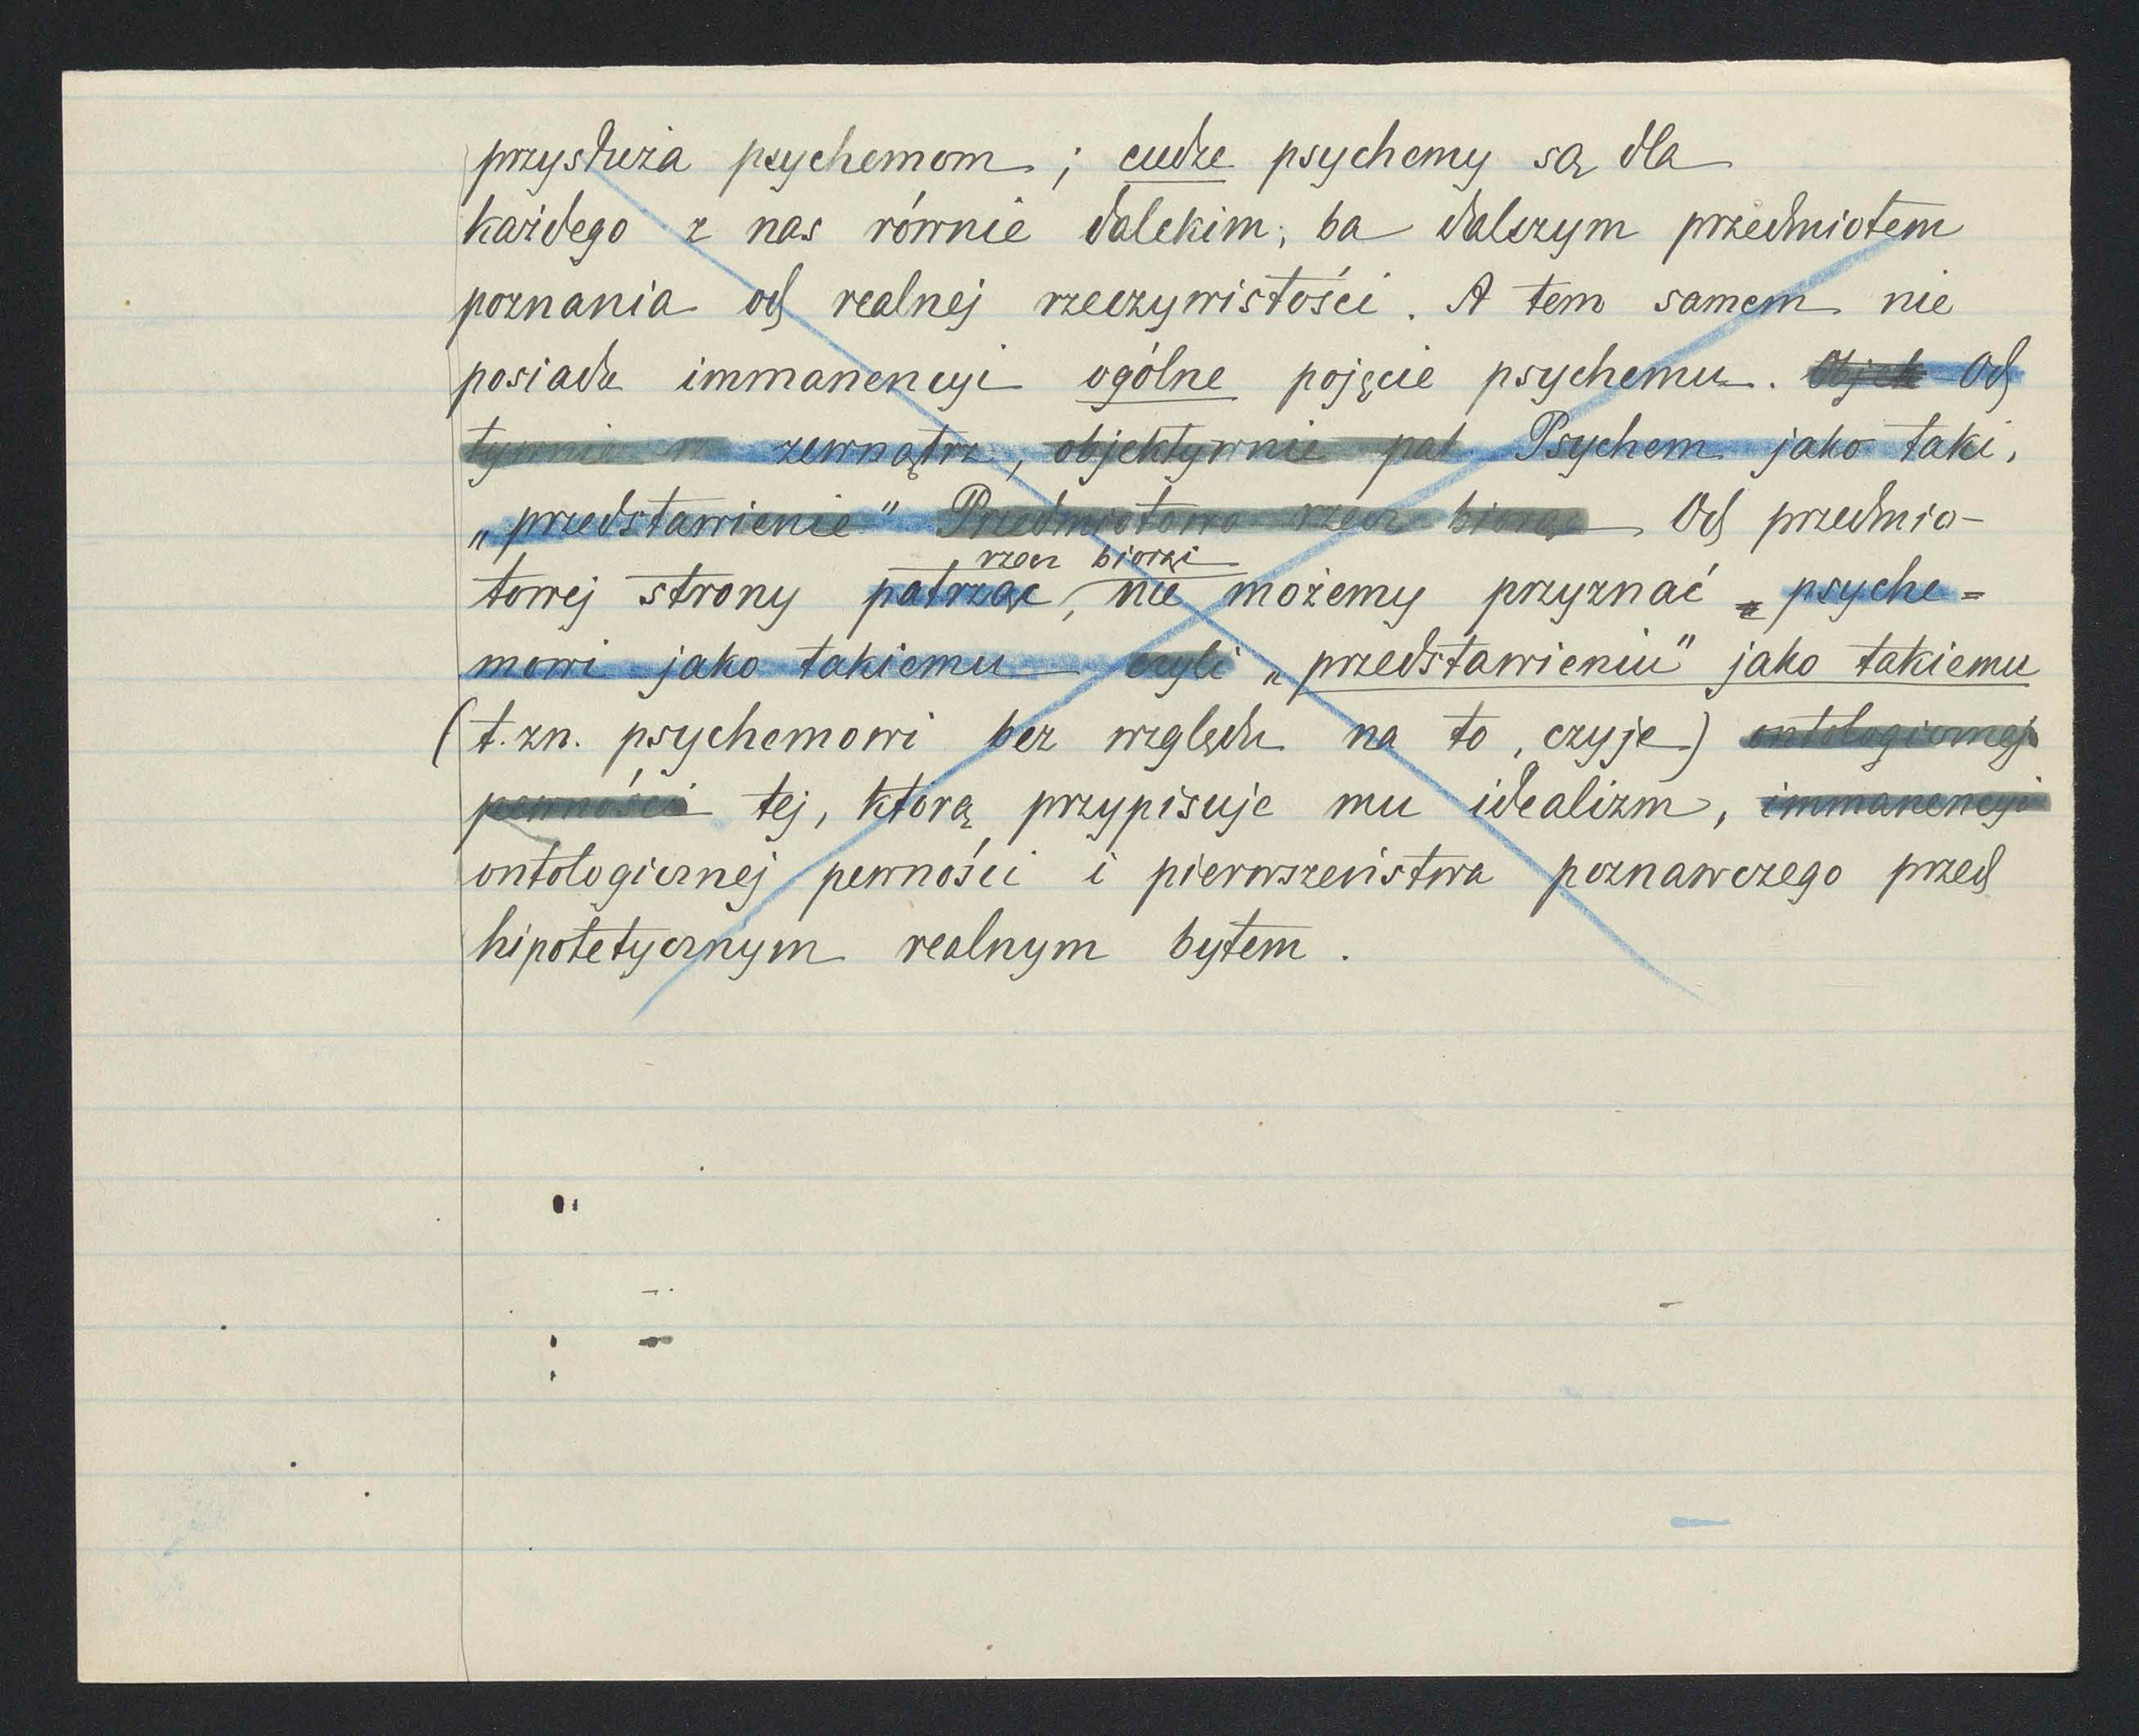 przysłuża psychemom ; cudze psychemy są dla
każdego z nas równie dalekim, ba dalszym przedmiotem
poznania od realnej rzeczywistości. A tem samem nie
posiada immanencyi ogólne pojęcie psychemu. Objek Od
tywnie zewnątrz, objektywnie pat Psychem jako taki,
„przedstawienie" Przedmiotowo rzecz biorąc Od przedmio-
rzecz biorąc
towej strony patrząc, nie możemy przyznać psyche=
mowi jako takiemu czyli „przedstawieniu" jako takiemu
(t.zn. psychemowi bez względu na to, czyje) ontologicznej
pewności tej, którą przypisuje mu idealizm, immanencyi
ontologicznej pewności i pierwszeństwa poznawczego przed
hipotetycznym realnym bytem.